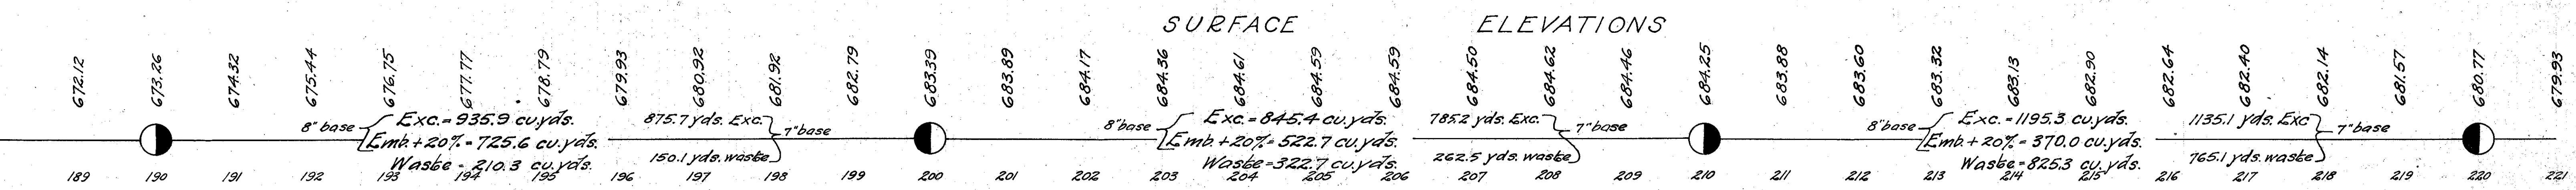 SURFACE ELEVATIONS
672.12 673.26 674.32 675.44 676.75 677.77 678.79 679.93 680.92 681.92 682.79 683.39 683.89 684.17 684.36 684.61 684.59 684.59 684.50 684.62 684.46 684.25 683.88 683.60 683.32 683.13 682.90 682.64 682.40 682.14 681.57 680.77 679.93
8" base Exc. = 935.9 cu.yds. 875.7 yds. Exc. 7" base
Emb. + 20% = 725.6 cu.yds.
Waste = 210.3 cu.yds. 150.1 yds. waste
8" base Exc. = 845.4 cu.yds. 785.2 yds. Exc. 7" base
Emb. + 20% = 522.7 cu.yds.
Waste = 322.7 cu.yds. 262.5 yds. waste
8" base Exc. = 1195.3 cu.yds. 1135.1 yds. Exc 7" base
Emb. + 20% = 370.0 cu.yds.
Waste = 825.3 cu.yds. 765.1 yds. waste
189 190 191 192 193 194 195 196 197 198 199 200 201 202 203 204 205 206 207 208 209 210 211 212 213 214 215 216 217 218 219 220 221